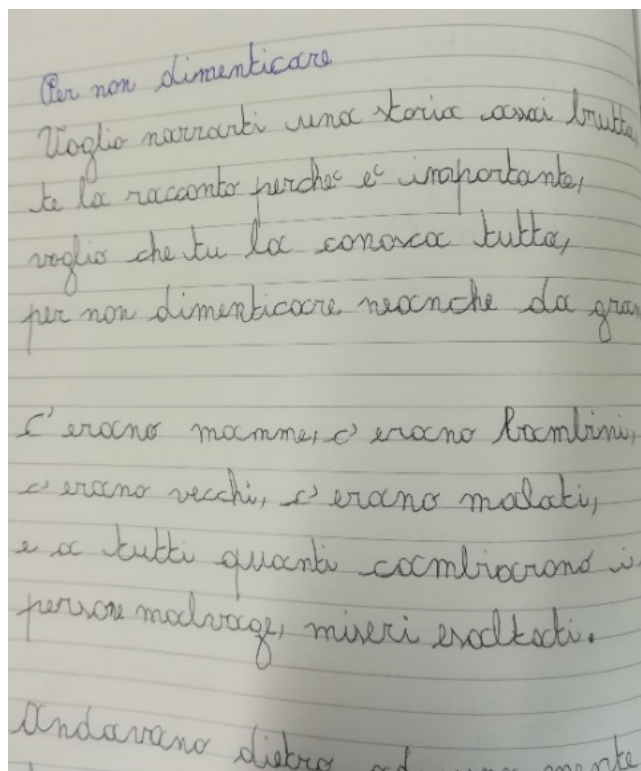 Per non dimenticare
Voglio narrarti una storia assai brutta,
te la racconto perché é importante,
voglio che tu la conosca tutta,
per non dimenticare neanche da gran
c'erano mamme, c'erano bambini,
c'erano vecchi, c'erano malati,
e a tutti quanti cambiarono i
persone malvage, miseri esaltati.
Andavano dietro ad una mente